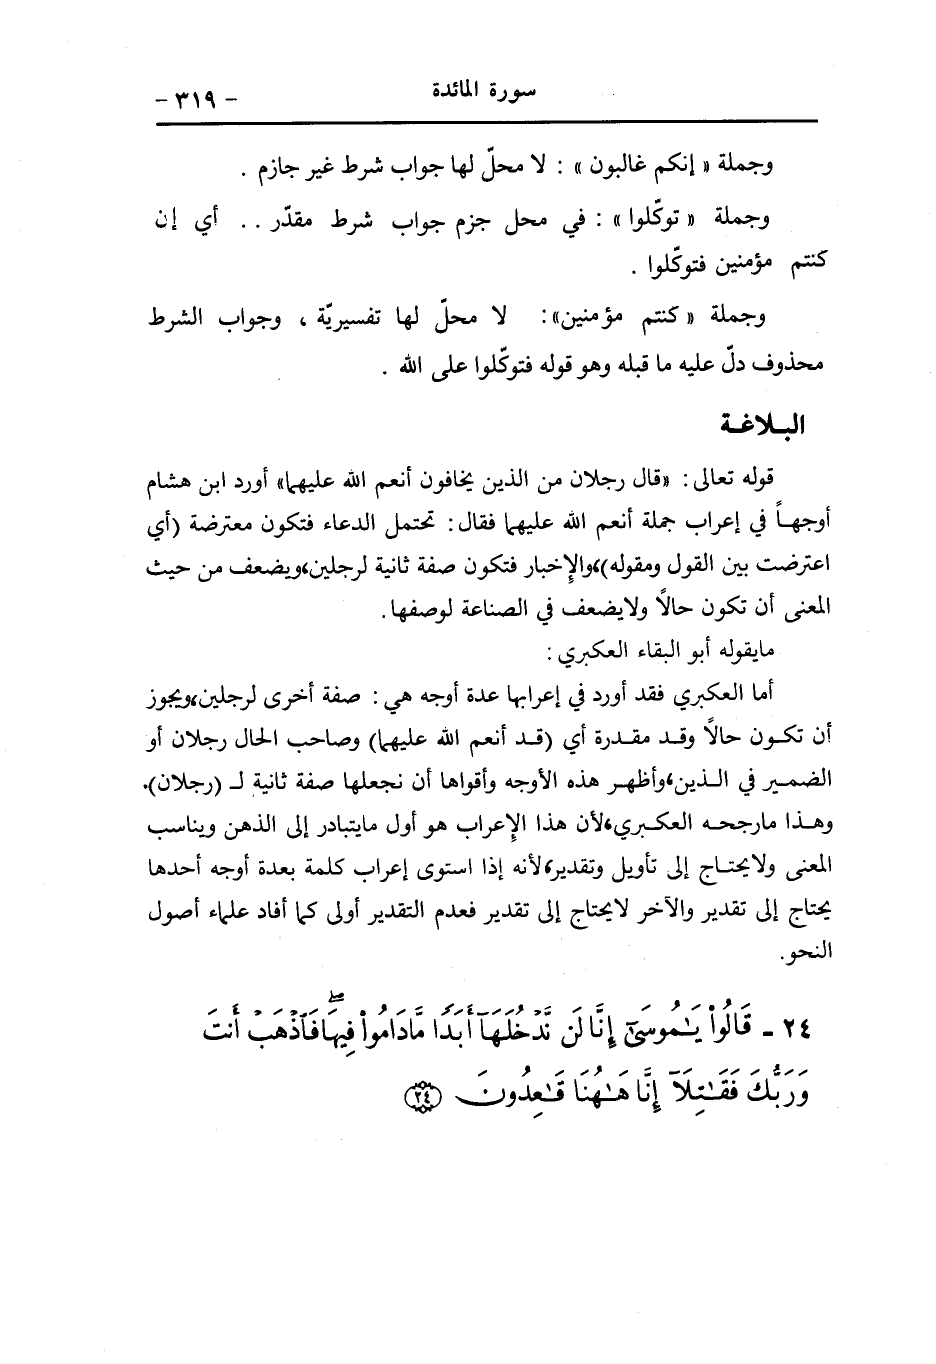 سورة المائدة - ٣١٩ -
وجملة « إنكم غالبون » : لا محلّ لها جواب شرط غير جازم .
وجملة « توكّلوا » : في محل جزم جواب شرط مقدّر .. أي إن
كنتم مؤمنين فتوكّلوا .
وجملة « كنتم مؤمنين»: لا محلّ لها تفسيريّة ، وجواب الشرط
محذوف دلّ عليه ما قبله وهو قوله فتوكّلوا على الله .
البـلاغـة
قوله تعالى: «قال رجلان من الذين يخافون أنعم الله عليهما» أورد ابن هشام
أوجهـاً في إعراب جملة أنعم الله عليهما فقال: تحتمل الدعاء فتكون معترضة (أي
اعترضت بين القول ومقوله)،والإخبار فتكون صفة ثانية لرجلين،ويضعف من حيث
المعنى أن تكون حالاً ولايضعف في الصناعة لوصفها.
مايقوله أبو البقاء العكبري :
أما العكبري فقد أورد في إعرابها عدة أوجه هي : صفة أخرى لرجلين،ويجوز
أن تكـون حالاً وقـد مقـدرة أي (قـد أنعم الله عليهما) وصاحب الحال رجلان أو
الضمـير في الـذين،وأظهـر هذه الأوجه وأقواها أن نجعلها صفة ثانية لـ (رجلان).
وهـذا مارجحـه العكـبري،لأن هذا الإعراب هو أول مايتبادر إلى الذهن ويناسب
المعنى ولايحتـاج إلى تأويل وتقدير،لأنه إذا استوى إعراب كلمة بعدة أوجه أحدها
يحتاج إلى تقدير والآخر لايحتاج إلى تقدير فعدم التقدير أولى كما أفاد علماء أصول
النحو.
٢٤ ـ قَالُوا۟ يَـٰمُوسَىٰٓ إِنَّا لَن نَّدْخُلَهَآ أَبَدًا مَّادَامُوا۟ فِيهَا ۖ فَٱذْهَبْ أَنتَ
وَرَبُّكَ فَقَـٰتِلَآ إِنَّا هَـٰهُنَا قَـٰعِدُونَ ﴿٢٤﴾